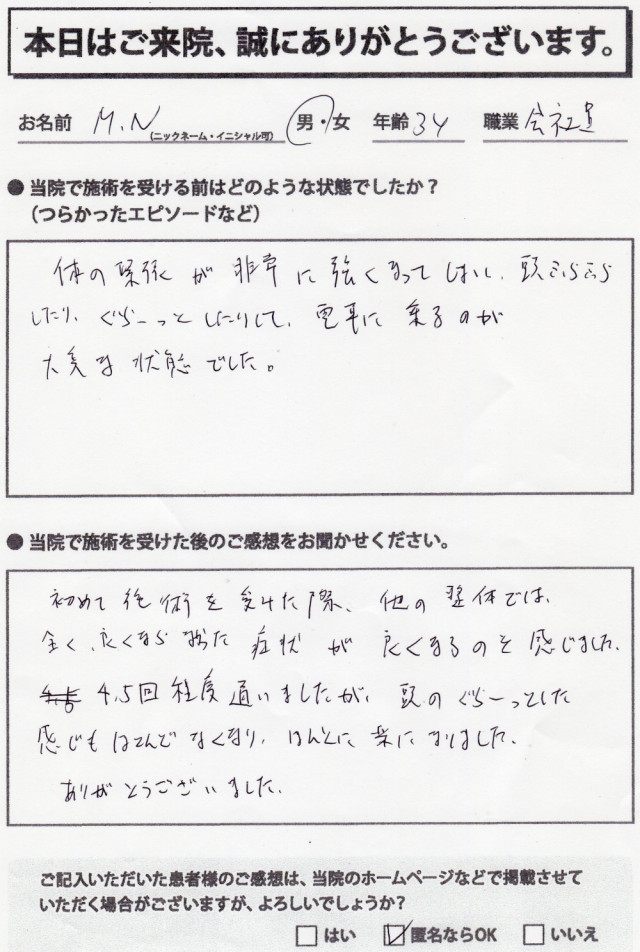 本日はご来院、誠にありがとうございます。
お名前 M.N (ニックネーム・イニシャル可) 男・女 年齢 34 職業 会社員
● 当院で施術を受ける前はどのような状態でしたか？
(つらかったエピソードなど)
体の緊張が非常に強くなってしまい、頭ふらふら
したり、ぐらーっとしたりして、電車に乗るのが
大変な状態でした。
● 当院で施術を受けた後のご感想をお聞かせください。
初めて施術を受けた際、他の整体では、
全く、良くならなかった症状が良くなるのを感じました。
4,5回程度通いましたが、頭のぐらーっとした
感じもほとんどなくなり、ほんとに楽になりました。
ありがとうございました。
ご記入いただいた患者様のご感想は、当院のホームページなどで掲載させて
いただく場合がございますが、よろしいでしょうか？
はい 匿名ならOK いいえ